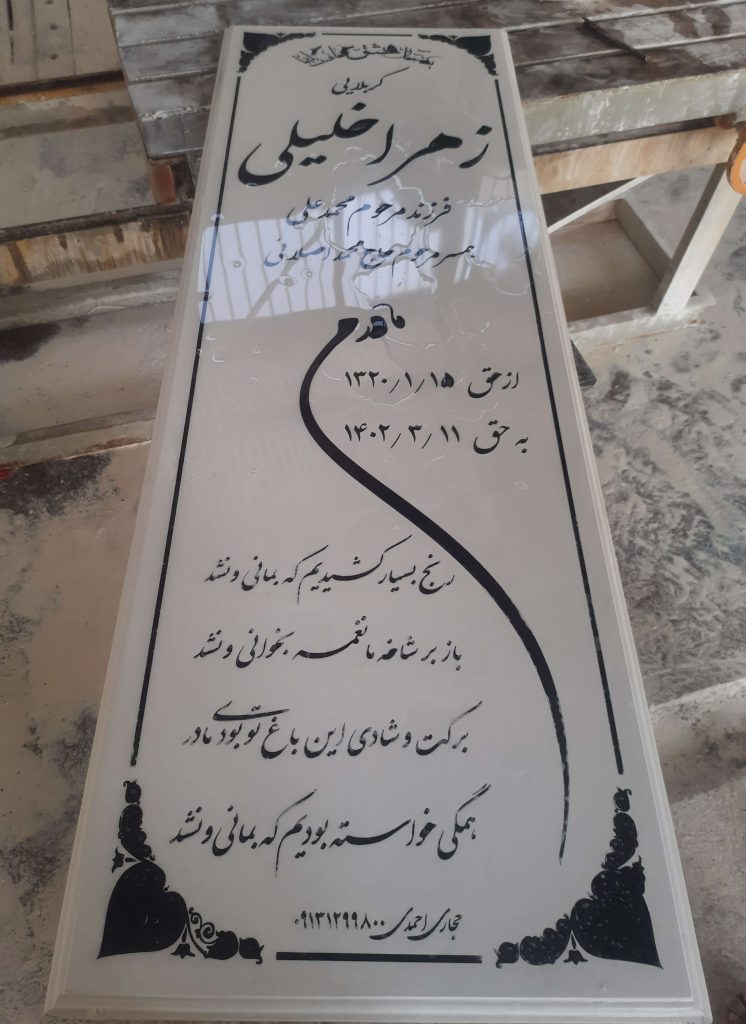 کربلایی
زهرا خلیلی
فرزند مرحوم محمدعلی
همسر مرحوم حاج محمد اصلانی
مادرم
از حق ۱۳۲۰/۱/۱۵
به حق ۱۴۰۲/۳/۱۱
رنج بسیار کشیدیم که بمانی و نشد
باز بر شاخه ما نغمه بخوانی و نشد
برکت و شادی این باغ تو بودی مادر
همگی خواسته بودیم که بمانی و نشد
حجاری احمدی ۰۹۱۳۱۲۹۹۸۰۰